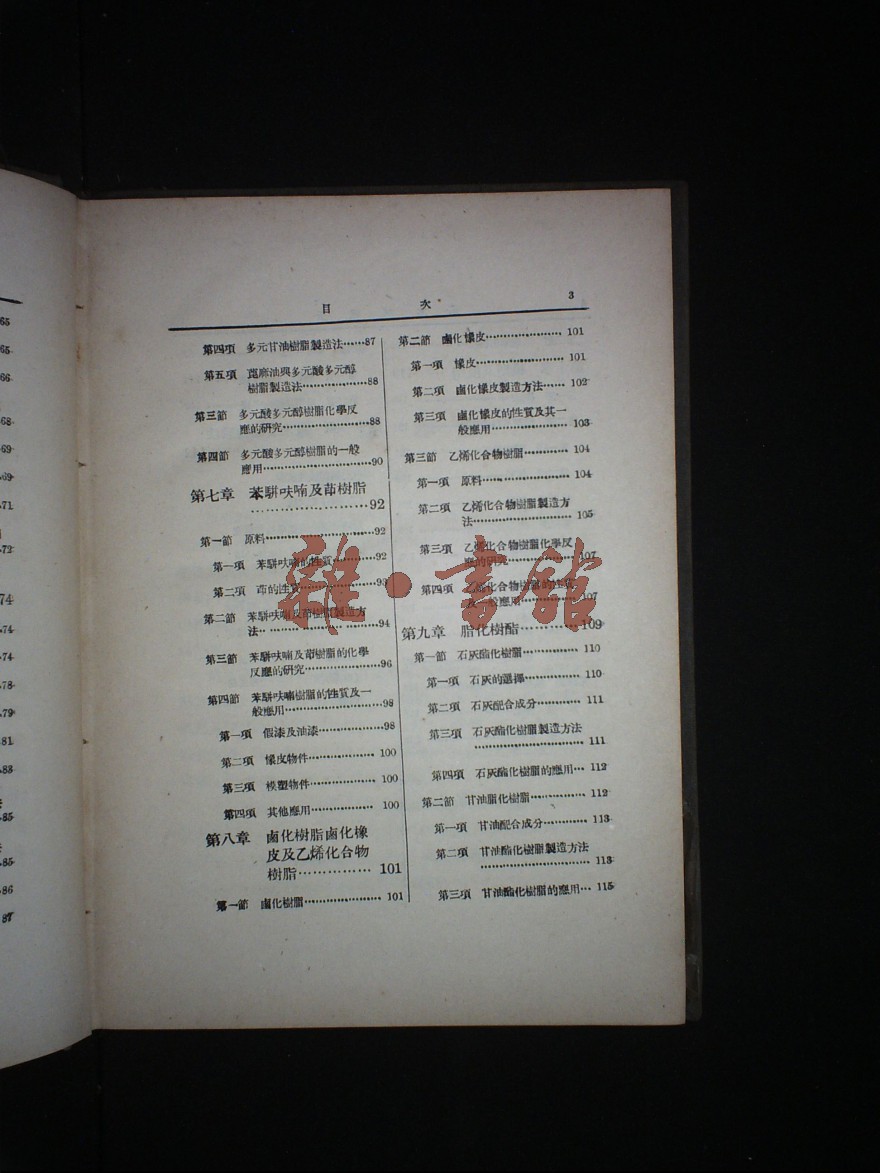 65
65
66
68
69
69
71
72
74
74
74
78
79
81
83
85
85
86
87
目 次 3
第四項 多元甘油樹脂製造法……87
第五項 蓖麻油與多元酸多元醇
樹脂製造法………………88
第三節 多元酸多元醇樹脂化學反
應的研究…………………88
第四節 多元酸多元醇樹脂的一般
應用………………………90
第七章 苯駢呋喃及茚樹脂
…………………92
第一節 原料………………………92
第一項 苯駢呋喃的性質………92
第二項 茚的性質………………93
第二節 苯駢呋喃及茚樹脂製造方
法…………………………94
第三節 苯駢呋喃及茚樹脂的化學
反應的研究………………96
第四節 苯駢呋喃樹脂的性質及一
般應用……………………98
第一項 假漆及油漆……………98
第二項 橡皮物件……………100
第三項 模塑物件……………100
第四項 其他應用……………100
第八章 鹵化樹脂鹵化橡
皮及乙烯化合物
樹脂……………101
第一節 鹵化樹脂………………101
第二節 鹵化橡皮………………101
第一項 橡皮…………………101
第二項 鹵化橡皮製造方法……102
第三項 鹵化橡皮的性質及其一
般應用………………103
第三節 乙烯化合物樹脂………104
第一項 原料…………………104
第二項 乙烯化合物樹脂製造方
法……………………105
第三項 乙烯化合物樹脂化學反
應的研究……………107
第四項 乙烯化合物樹脂的性質
及一般應用…………107
第九章 脂化樹酯…………109
第一節 石灰酯化樹脂…………110
第一項 石灰的選擇…………110
第二項 石灰配合成分………111
第三項 石灰酯化樹脂製造方法
……………………111
第四項 石灰酯化樹脂的應用…112
第二節 甘油脂化樹脂…………112
第一項 甘油配合成分………113
第二項 甘油酯化樹脂製造方法
……………………113
第三項 甘油酯化樹脂的應用…115
雜·書館